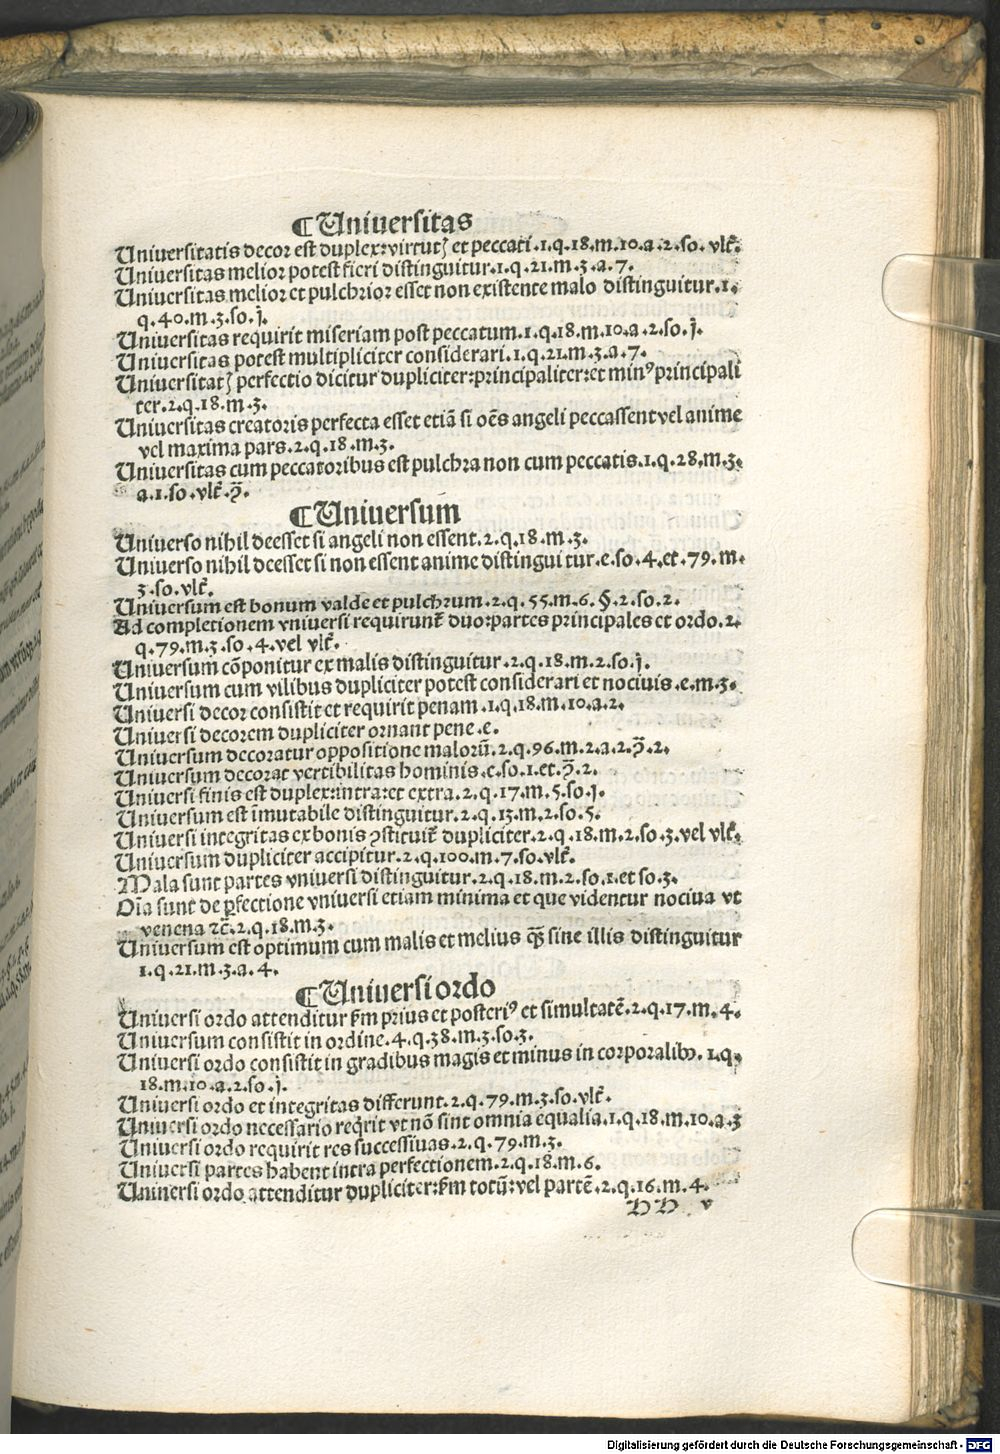 ¶Uniuersitas
Uniuersitatis decor est duplex:virtutꝭ et peccati.1.q.18.m.10.a.2.so.vltꝭ.
Uniuersitas melior potest fieri distinguitur.1.q.21.m.3.a.7.
Uniuersitas melior et pulchrior esset non existente malo distinguitur.1.
q.40.m.3.so.j.
Uniuersitas requirit miseriam post peccatum.1.q.18.m.10.a.2.so.j.
Uniuersitas potest multipliciter considerari.1.q.21.m.3.a.7.
Uniuersitatꝭ perfectio dicitur dupliciter:principaliter:et minꝰ principali
ter.2.q.18.m.3.
Uniuersitas creatoris perfecta esset etiā si oēs angeli peccassent vel anime
vel maxima pars.2.q.18.m.3.
Uniuersitas cum peccatoribus est pulchra non cum peccatis.1.q.28.m.3.
a.1.so.vltꝭ.ꝙ̄.
¶Uniuersum
Uniuerso nihil deesset si angeli non essent.2.q.18.m.3.
Uniuerso nihil deesset si non essent anime distingui tur.e.so.4.et.79.m.
3.so.vltꝭ.
Uniuersum est bonum valde et pulchrum.2.q.55.m.6.§.2.so.2.
Ad completionem vniuersi requirunt̄ duo:partes principales et ordo.2.
q.79.m.3.so.4.vel vltꝭ.
Uniuersum cōponitur ex malis distinguitur.2.q.18.m.2.so.j.
Uniuersum cum vilibus dupliciter potest considerari et nociuis.e.m.3.
Uniuersi decor consistit et requirit penam.1.q.18.m.10.a.2.
Uniuersi decorem dupliciter ornant pene.e.
Uniuersum decoratur oppositione malorū.2.q.96.m.2.a.2.ꝙ̄.2.
Uniuersum decorat vertibilitas hominis.e.so.1.et.ꝙ̄.2.
Uniuersi finis est duplex:intra:et extra.2.q.17.m.5.so.j.
Uniuersum est īmutabile distinguitur.2.q.13.m.2.so.5.
Uniuersi integritas ex bonis ↄstituit̄ dupliciter.2.q.18.m.2.so.3.vel vltꝭ.
Uniuersum dupliciter accipitur.2.q.100.m.7.so.vltꝭ.
Mala sunt partes vniuersi distinguitur.2.q.18.m.2.so.1.et so.3.
Oīa sunt de ꝑfectione vniuersi etiam minima et que videntur nociua vt
venena ⁊c̄.2.q.18.m.3.
Uniuersum est optimum cum malis et melius q̄ꝫ sine illis distinguitur
1.q.21.m.3.a.4.
¶Uniuersi ordo
Uniuersi ordo attenditur ẜm prius et posteriꝰ et simultatē.2.q.17.m.4.
Uniuersum consistit in ordine.4.q.38.m.3.so.3.
Uniuersi ordo consistit in gradibus magis et minus in corporalibꝰ.1.q.
18.m.10.a.2.so.j.
Uniuersi ordo et integritas differunt.2.q.79.m.3.so.vltꝭ.
Uniuersi ordo necessario reqͥrit vt nō sint omnia equalia.1.q.18.m.10.a.3
Uniuersi ordo requirit res successiuas.2.q.79.m.3.
Uniuersi partes habent intra perfectionem.2.q.18.m.6.
Uniuersi ordo attenditur dupliciter:ẜm totū:vel partē.2.q.16.m.4.
HH v
Digitalisierung gefördert durch die Deutsche Forschungsgemeinschaft - DFG